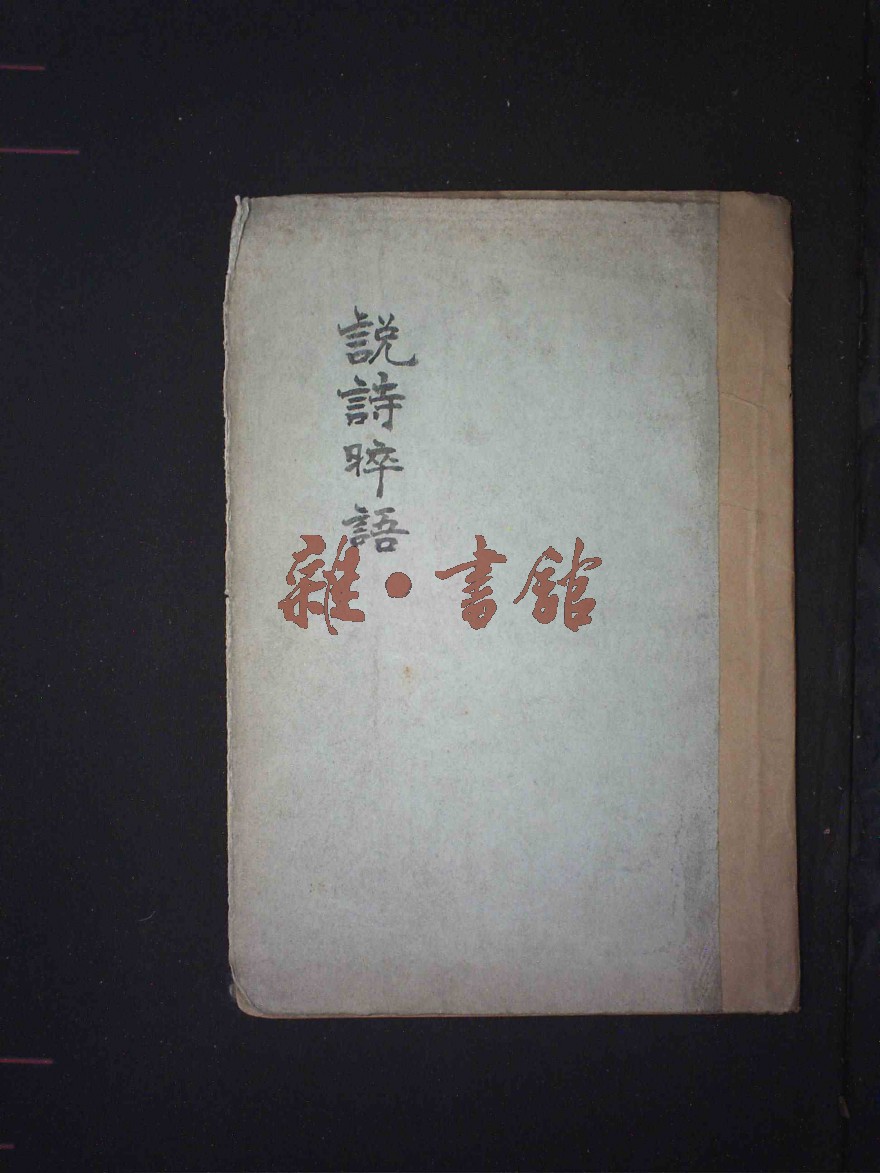 說詩晬語
雜·書館